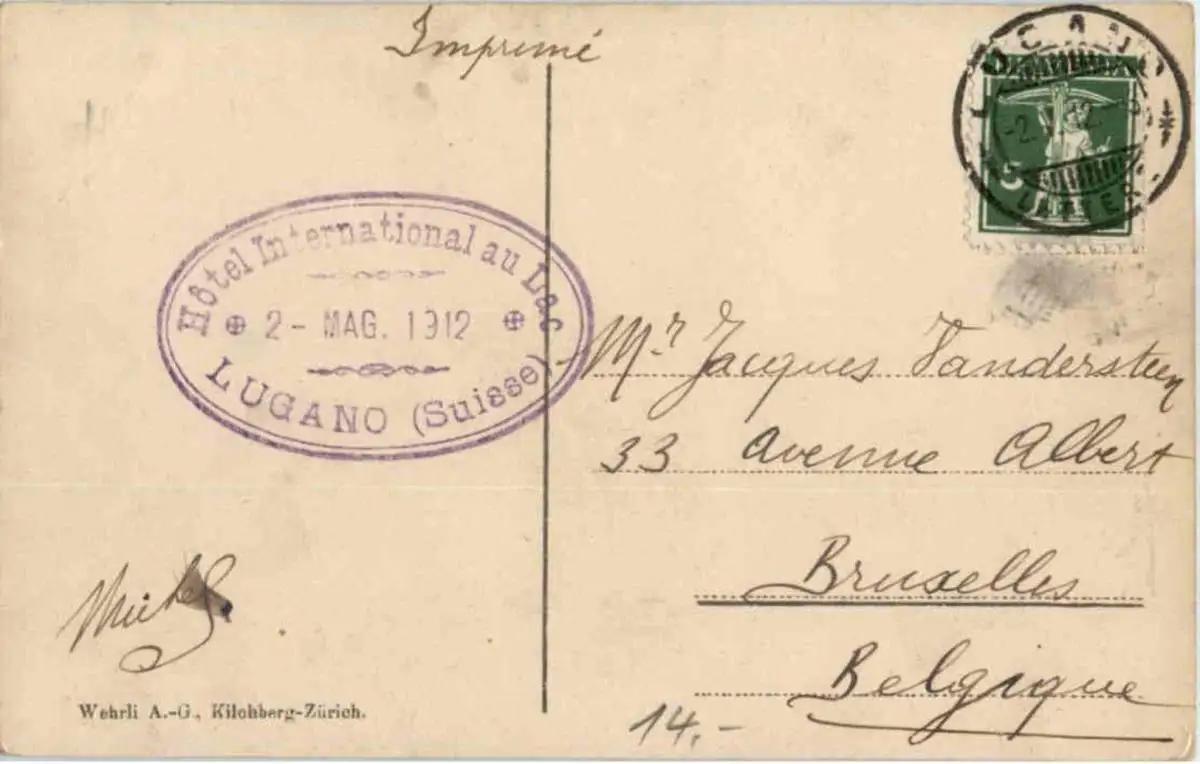 Imprimé
LUGANO
-2.V.12.-8
LETTER.
5
Hôtel International au Lac
2 - MAG. 1912
LUGANO (Suisse)
Mr Jacques Vandersteen
33 Avenue Albert
Bruxelles
Belgique
Michel
Wehrli A.-G., Kilchberg-Zürich.
14.-